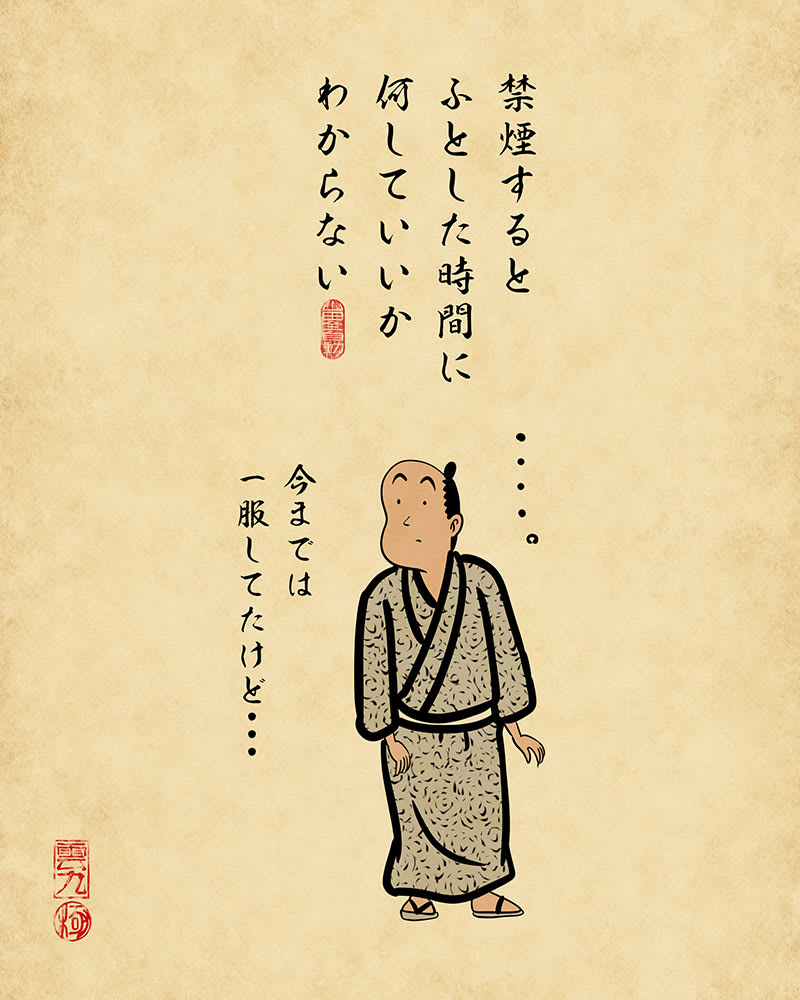 禁煙すると
ふとした時間に
何していいか
わからない
・・・・。
今までは
一服してたけど・・・